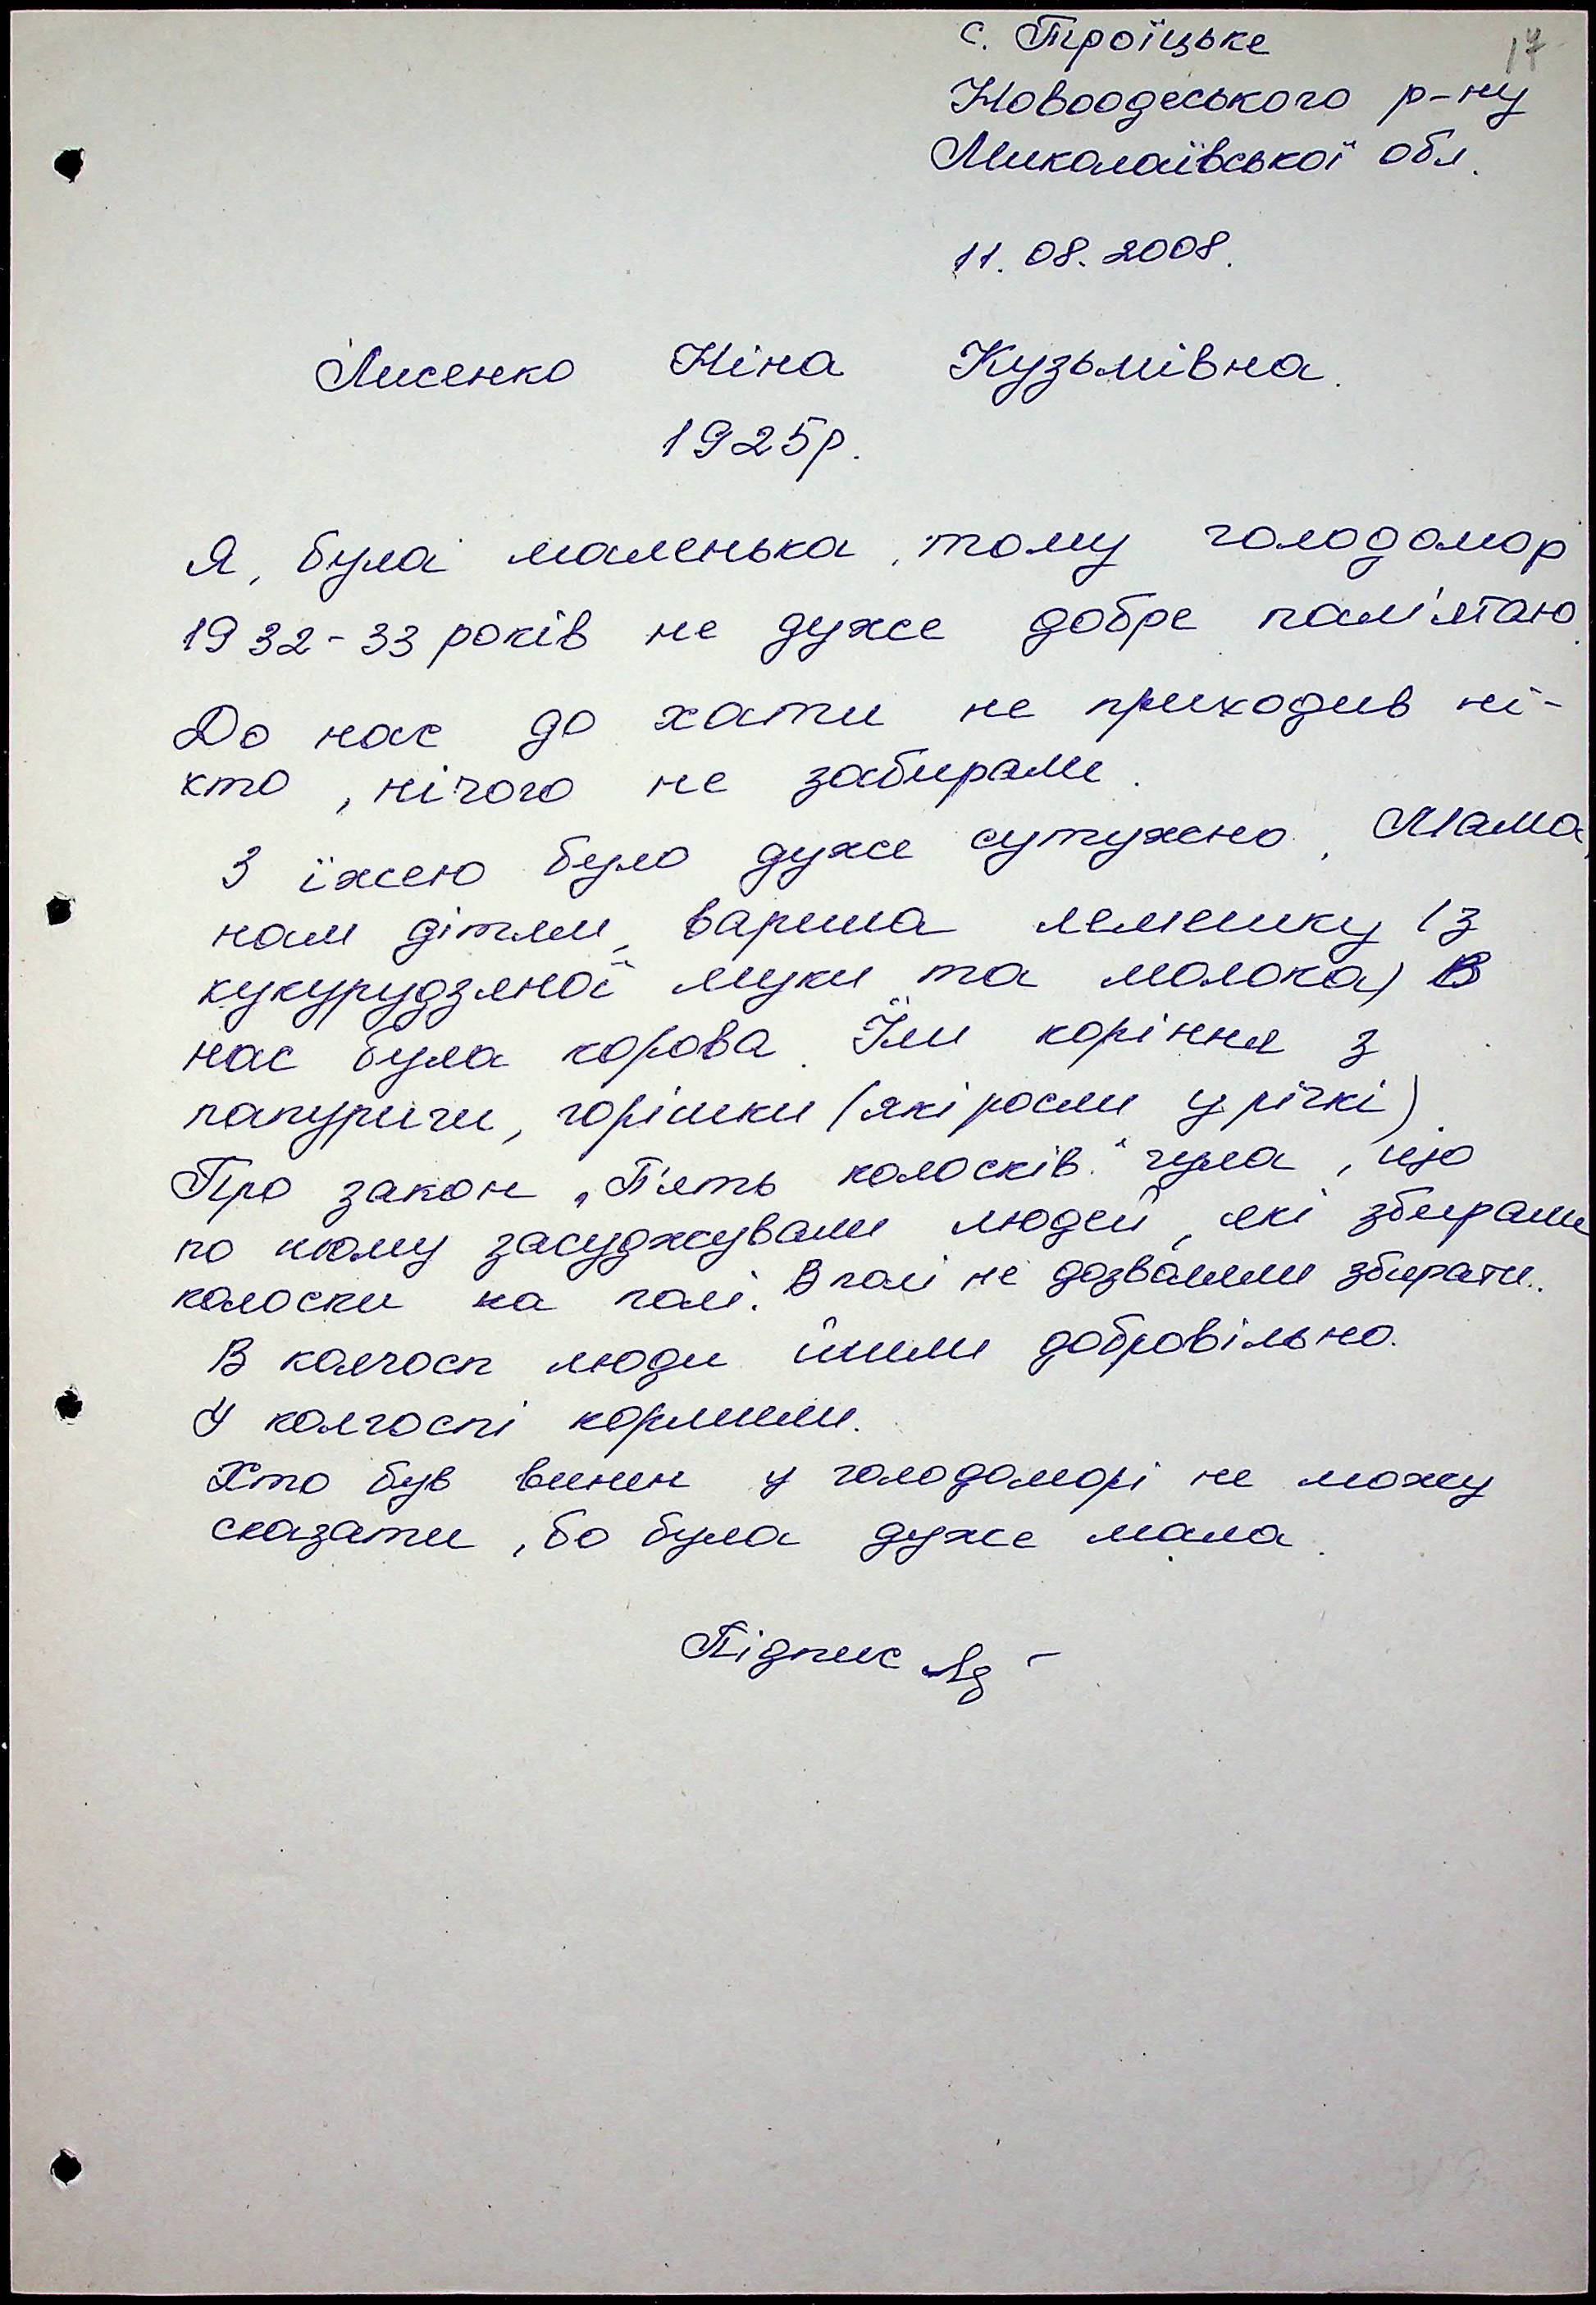 с. Троїцьке
17
Новоодеського р-ну
Миколаївської обл.
11.08.2008.
Лисенко Ніна Кузьмівна.
1925р.
Я, була маленька, тому голодомор
1932-33 років не дуже добре пам'ятаю.
До нас до хати не приходив ні-
хто, нічого не забирали.
З їжею було дуже сутужно. Мама,
нам дітям, варила лемешку (з
кукурудзяної муки та молока) В
нас була корова. Їли коріння з
папуричи, горішки (які росли у річкі).
Про закон „П'ять колосків" чула, що
по ньому засуджували людей, які збирали
колоски на полі. В полі не дозволяли збирати.
В колгосп люди йшли добровільно.
У колгоспі кормили.
Хто був винен у голодоморі не можу
сказати, бо була дуже мала.
Підпис